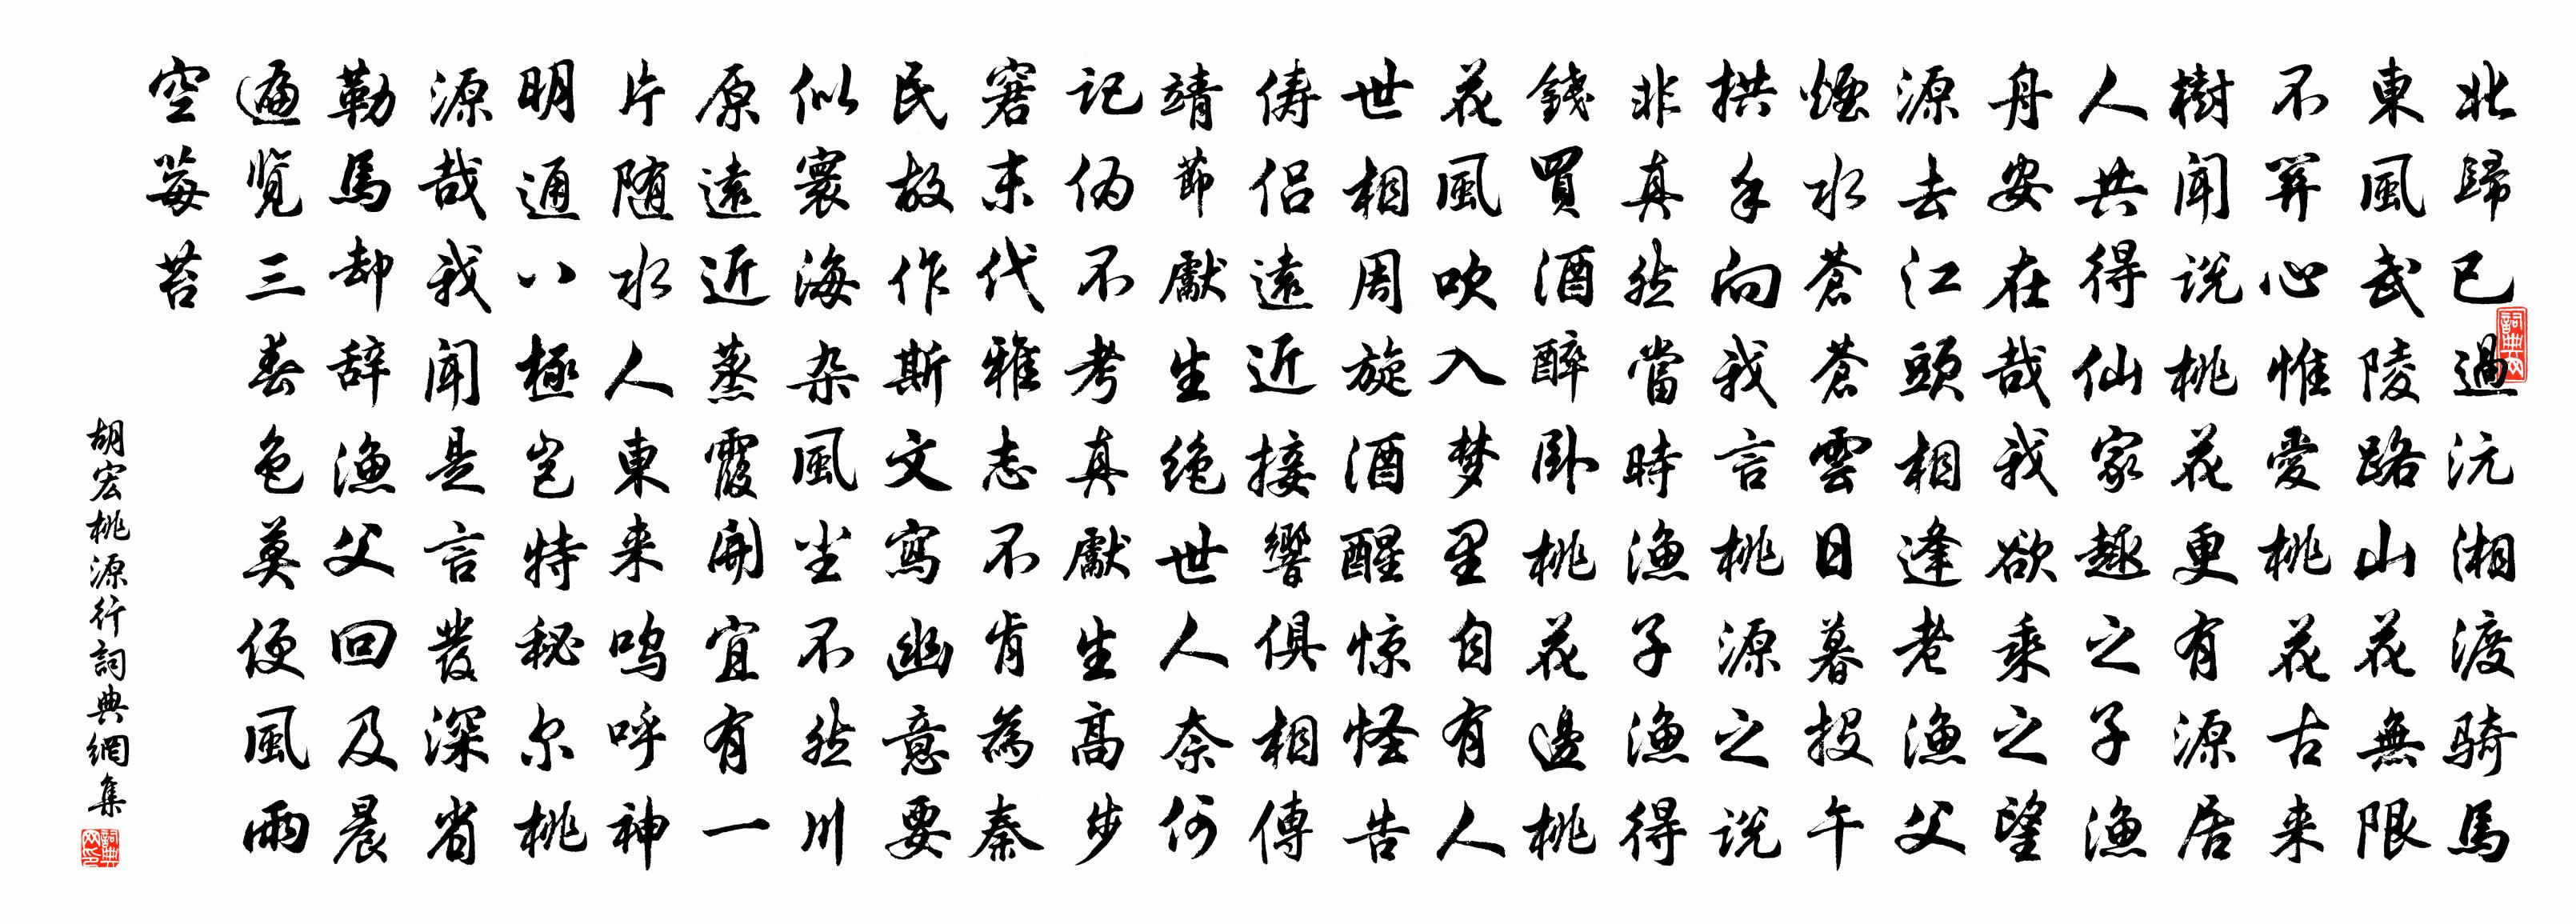 北歸已過沅湘渡骑馬
東風武陵路山花無限
不関心惟愛桃花古来
樹聞说桃花更有源居
人共得仙家趣之子漁
舟安在哉我欲乘之望
源去江頭相逢老漁父
煙水蒼蒼雲日暮投午
拱手向我言桃源之说
非真然當時漁子漁得
錢買酒醉卧桃花邊桃
花風吹入梦里自有人
世相周旋酒醒惊怪告
俦侣遠近接響俱相傳
靖節獻生绝世人奈何
记伪不考真獻生高步
窘末代雅志不肯為秦
民故作斯文寫幽意要
似寰海杂風尘不然川
原遠近蒸霞開宜有一
片随水人東来呜呼神
明通八極岂特秘尔桃
源哉我聞是言發深省
勒馬却辞漁父回及晨
遍览三春色莫便風雨
空莓苔
胡宏桃源行詞典網集
詞典网
詞典网印